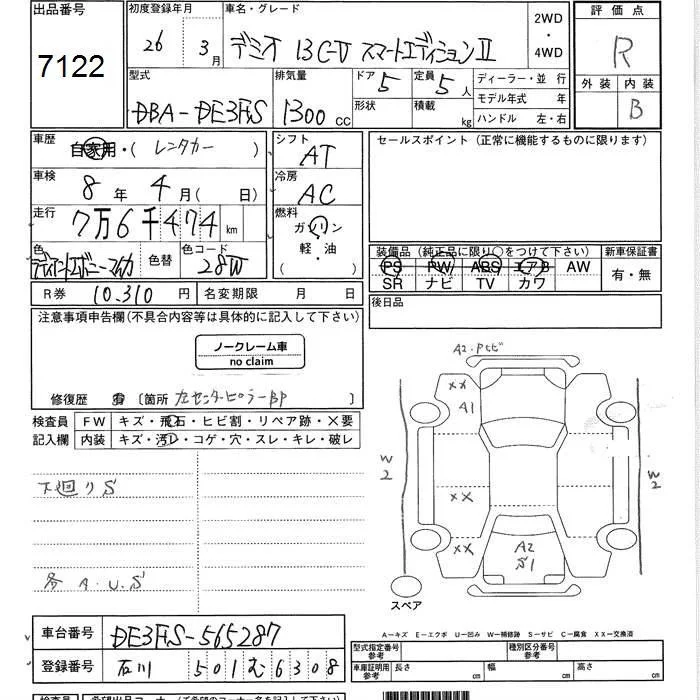 出品番号
7122
初度登録年月
26年 3月
車名・グレード
デミオ 13C-V スマートエディションⅡ
2WD
・
4WD
評価点
R
外装 内装
B
型式
DBA-DE3FS
排気量
1300 CC
ドア 5
形状
定員 5人
積載 kg
ディーラー・並行
モデル年式 年
ハンドル 左・右
車歴
自家用・( レンタカー )
車検
8年 4月( 日)
走行
7万6千474 km
色
色替
色コード
28W
シフト
AT
冷房
AC
燃料
ガソリン
軽・油
( )
セールスポイント (正常に機能するものに限ります)
装備品 (純正品に限り○をつけて下さい)
PS PW ABS エアB AW
SR ナビ TV カワ
新車保証書
有・無
後日品
R券 10,310円
名変期限 月 日
注意事項申告欄(不具合内容等は具体的に記入して下さい)
ノークレーム車
no claim
修復歴 有 〔箇所 左センターピラーBP 〕
検査員記入欄
FW キズ・飛石・ヒビ割・リペア跡・×要
内装 キズ・汚レ・コゲ・穴・スレ・キレ・破レ
下廻りS
各A.U.S
A2・Pとビ
XX
A1
W2
XX
XX
A2
S1
W2
スペア
A-キズ E-エクボ U-凹み W-補修跡 S-サビ C-腐食 XX-交換済
車台番号 DE3FS-565287
登録番号 石川 501 む 6308
型式指定番号
参考
種別区分番号
参考
車庫証明用
参考
長さ cm
幅 cm
高さ cm